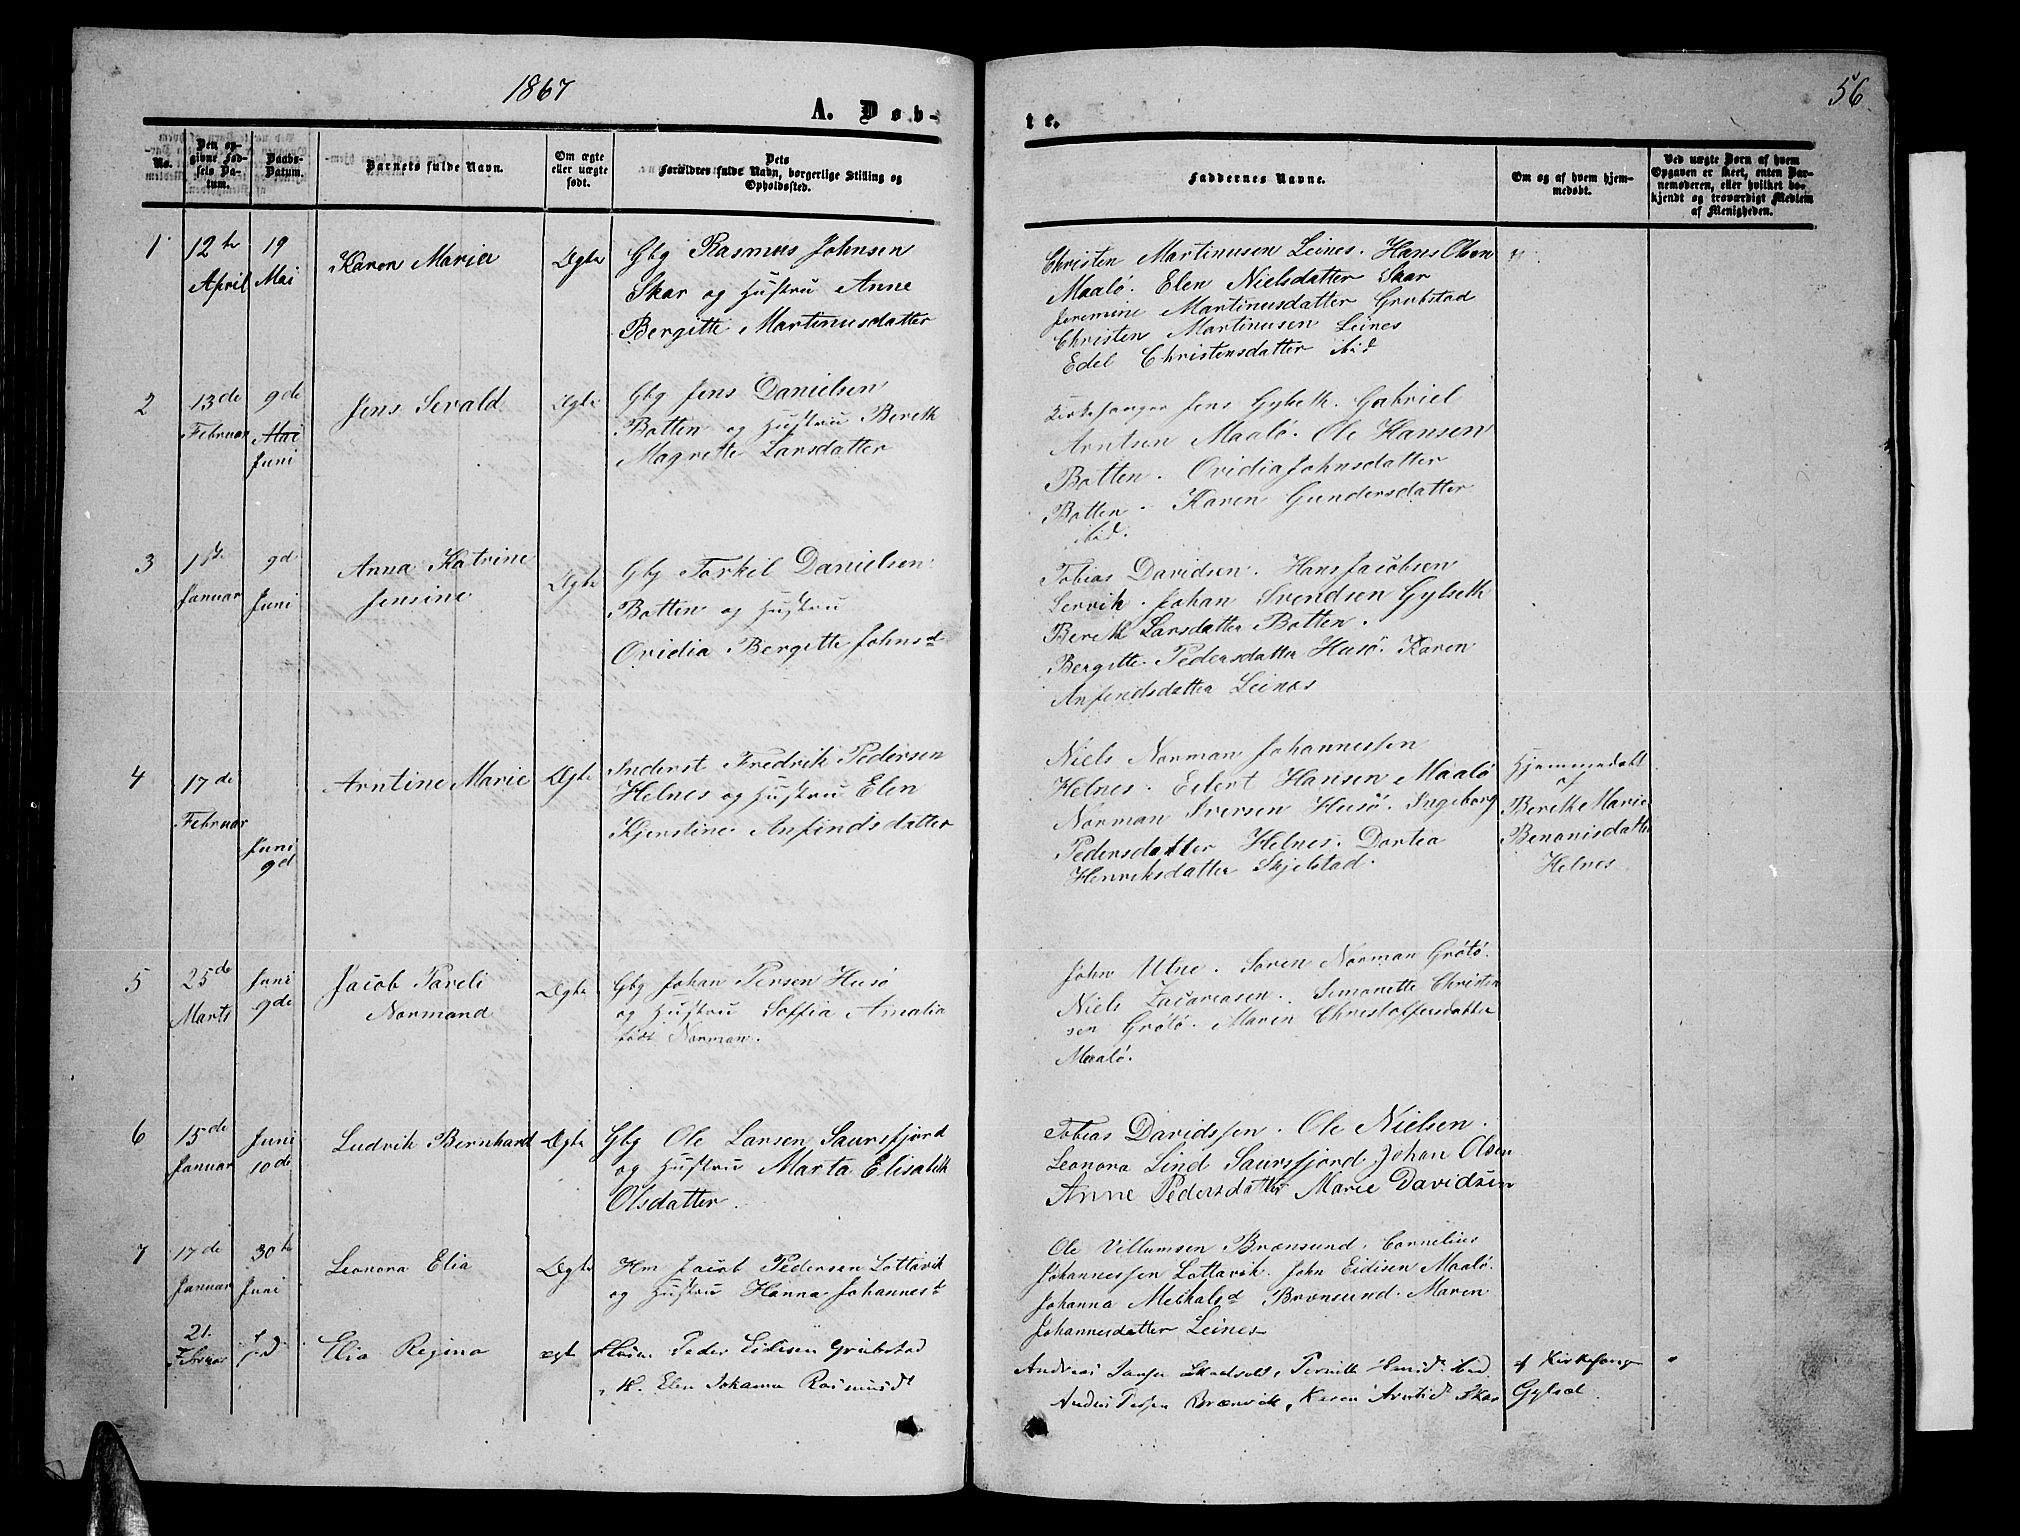 1867
56
A. Døb-
te.
No.
Den opgivne Fødsels Datum.
Daabs-Datum.
Barnets fulde Navn.
Om ægte eller uægte født.
Dets Forældres fulde Navn, borgerlige Stilling og Opholdssted.
Faddernes Navne.
Om og af hvem hjemmedøbt.
Ved uægte Børn af hvem Opgaven er skeet, enten Barnemoderen, eller hvilket bekjendt og troværdigt Medlem af Menigheden.
1
12te April
19 Mai
Karen Maria
Ægte
Gbg Rasmus Johnsen
Skar og Hustru Anne
Bergitte Martinusdatter
Christen Martinusen Leines. Hans Olsen
Maalö. Elen Nielsdatter Skar
Jeremine Martinusdatter Grøbstad
Christen Martinusen Leines
Edel Christensdatter ibid
2
13de Februar
9de Mai Juni
Jens Sevald
Ægte
Gbg Jens Danielsen
Botten og Hustru Bereth
Magrette Larsdatter
Kirkesanger Jens Gylseth. Gabriel
Arntsen Maalö. Ole Hansen
Botten. Ovidia Johnsdatter
Botten. Karen Gundersdatter
ibid.
3
1ste Januar
9d Juni
Anna Katrine
Jensine
Ægte
Gbg Torkel Danielsen
Botten og Hustru
Ovidia Bergitte Johnsd
Tobias Davidsen. Hans Jacobsen
Lervik. Johan Svendsen Gylseth
Bereth Larsdatter Botten.
Bergitte Pedersdatter Husö. Karen
Anfindsdatter Leines
4
17de Februar
Juni 9d
Arntine Marie
Ægte
Inderst Fredrik Pedersen
Helnes og Hustru Elen
Kjerstine Anfindsdatter
Niels Norman Johannessen
Helnes. Eilert Hansen Maalö
Norman Iversen Husö. Ingeborg
Pedersdatter Helnes. Dortea
Henriksdatter Skjelstad.
Hjemmedøbt
af
Bereth Marie
Benonisdatter
Helnes
5
25de Marts
Juni 9de
Jacob Pareli
Normand
Ægte
Gbg Johan Persen Husö
og Hustru Soffia Amalia
født Norman.
John Utne. Soren Norman Grötö.
Niels Zacariasen. Simonette Christen
sen Grötö. Maren Christoffersdatter
Maalö.
6
15de Januar
Juni 10de
Ludvik Bernhard
Ægte
Gbg Ole Larsen Saursfjord
og Hustru Marta Elisabeth
Olsdatter.
Tobias Davidssen. Ole Nielsen.
Leonora Lind Saursfjord Johan Olsen
Anne Pedersdatter Marie Davidsen
7
17de Januar
30te Juni
Leonora Elia
Ægte
Hm Jacob Pedersen Lottavik
og Hustru Hanna Johannesd
Ole Villumsen Brensund. Cornelius
Johannessen Lottavik. John Eidisen Maalö.
Johanna Mickalsd Brensund. Maren
Johannesdatter Leines
21. Februar
Elia Regina
ægte
Peder Eidisen Grøbstad
H. Elen Johanna Rasmusd
Andreas
af Kirkesanger
Gylset